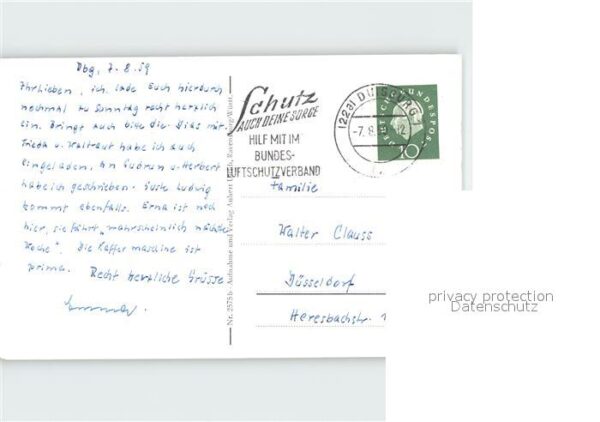 Dbg, 7.8.59
Ihr Lieben, ich lade Euch hierdurch
nochmal zu Sonntag recht herzlich
ein. Bringt auch bitte die Dias mit.
Frieda u. Waltraut habe ich auch
eingeladen, an Gudrun u. Herbert
habe ich geschrieben. Ludwig
kommt ebenfalls. Erna ist noch
hier, sie fährt "wahrscheinlich nächste
Woche". Die Kaffeemaschine ist
prima. Recht herzliche Grüsse
Nr. 2575 b - Aufnahme und Verlag Ravensburg/Württ.
Schutz
AUCH DEINE SORGE
HILF MIT IM
BUNDES-
LUFTSCHUTZVERBAND
(22a) DUISBURG
-7.8.
DEUTSCHE BUNDESPOST
10
Familie
Walter Clauss
Düsseldorf
Heresbachstr. 1
privacy protection
Datenschutz